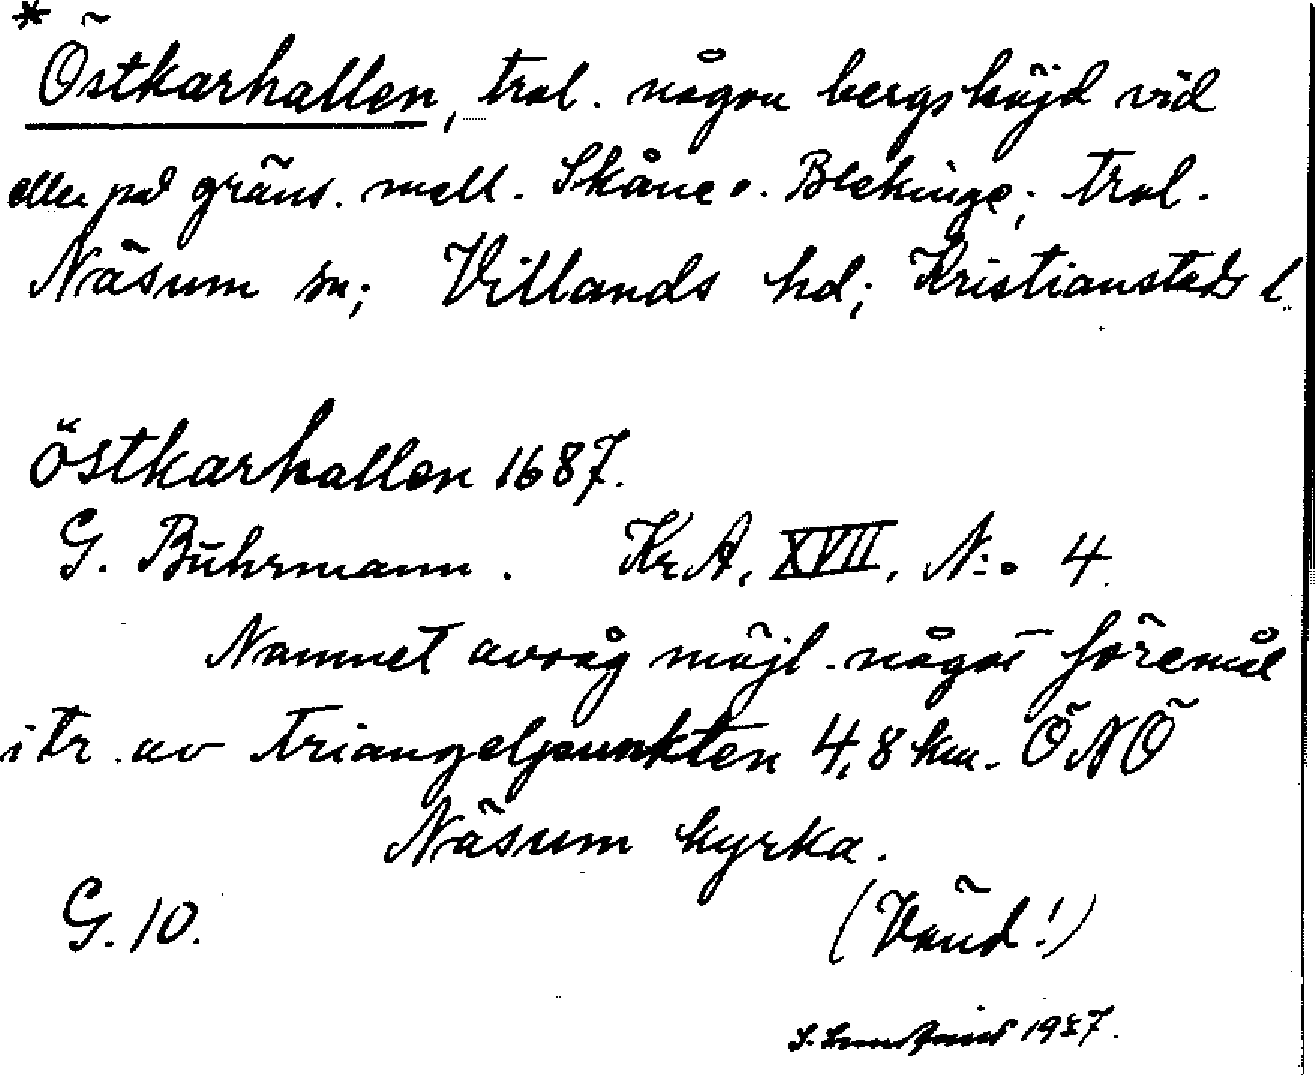 *
Östkarhallen, trol. någon bergshöjd vid
eller på gräns. mell. Skåne o. Blekinge; trol.
Näsum sn; Villands hd; Kristianstads l.
Östkarhallen 1687.
G. Buhrmann. Kr.A. XVII, N:o 4.
Namnet avsåg möjl. något föremål
i tr. av triangelpunkten 4,8 km. ÖNÖ
Näsum kyrka.
G. 10. (Vänd!)
S. 1927.